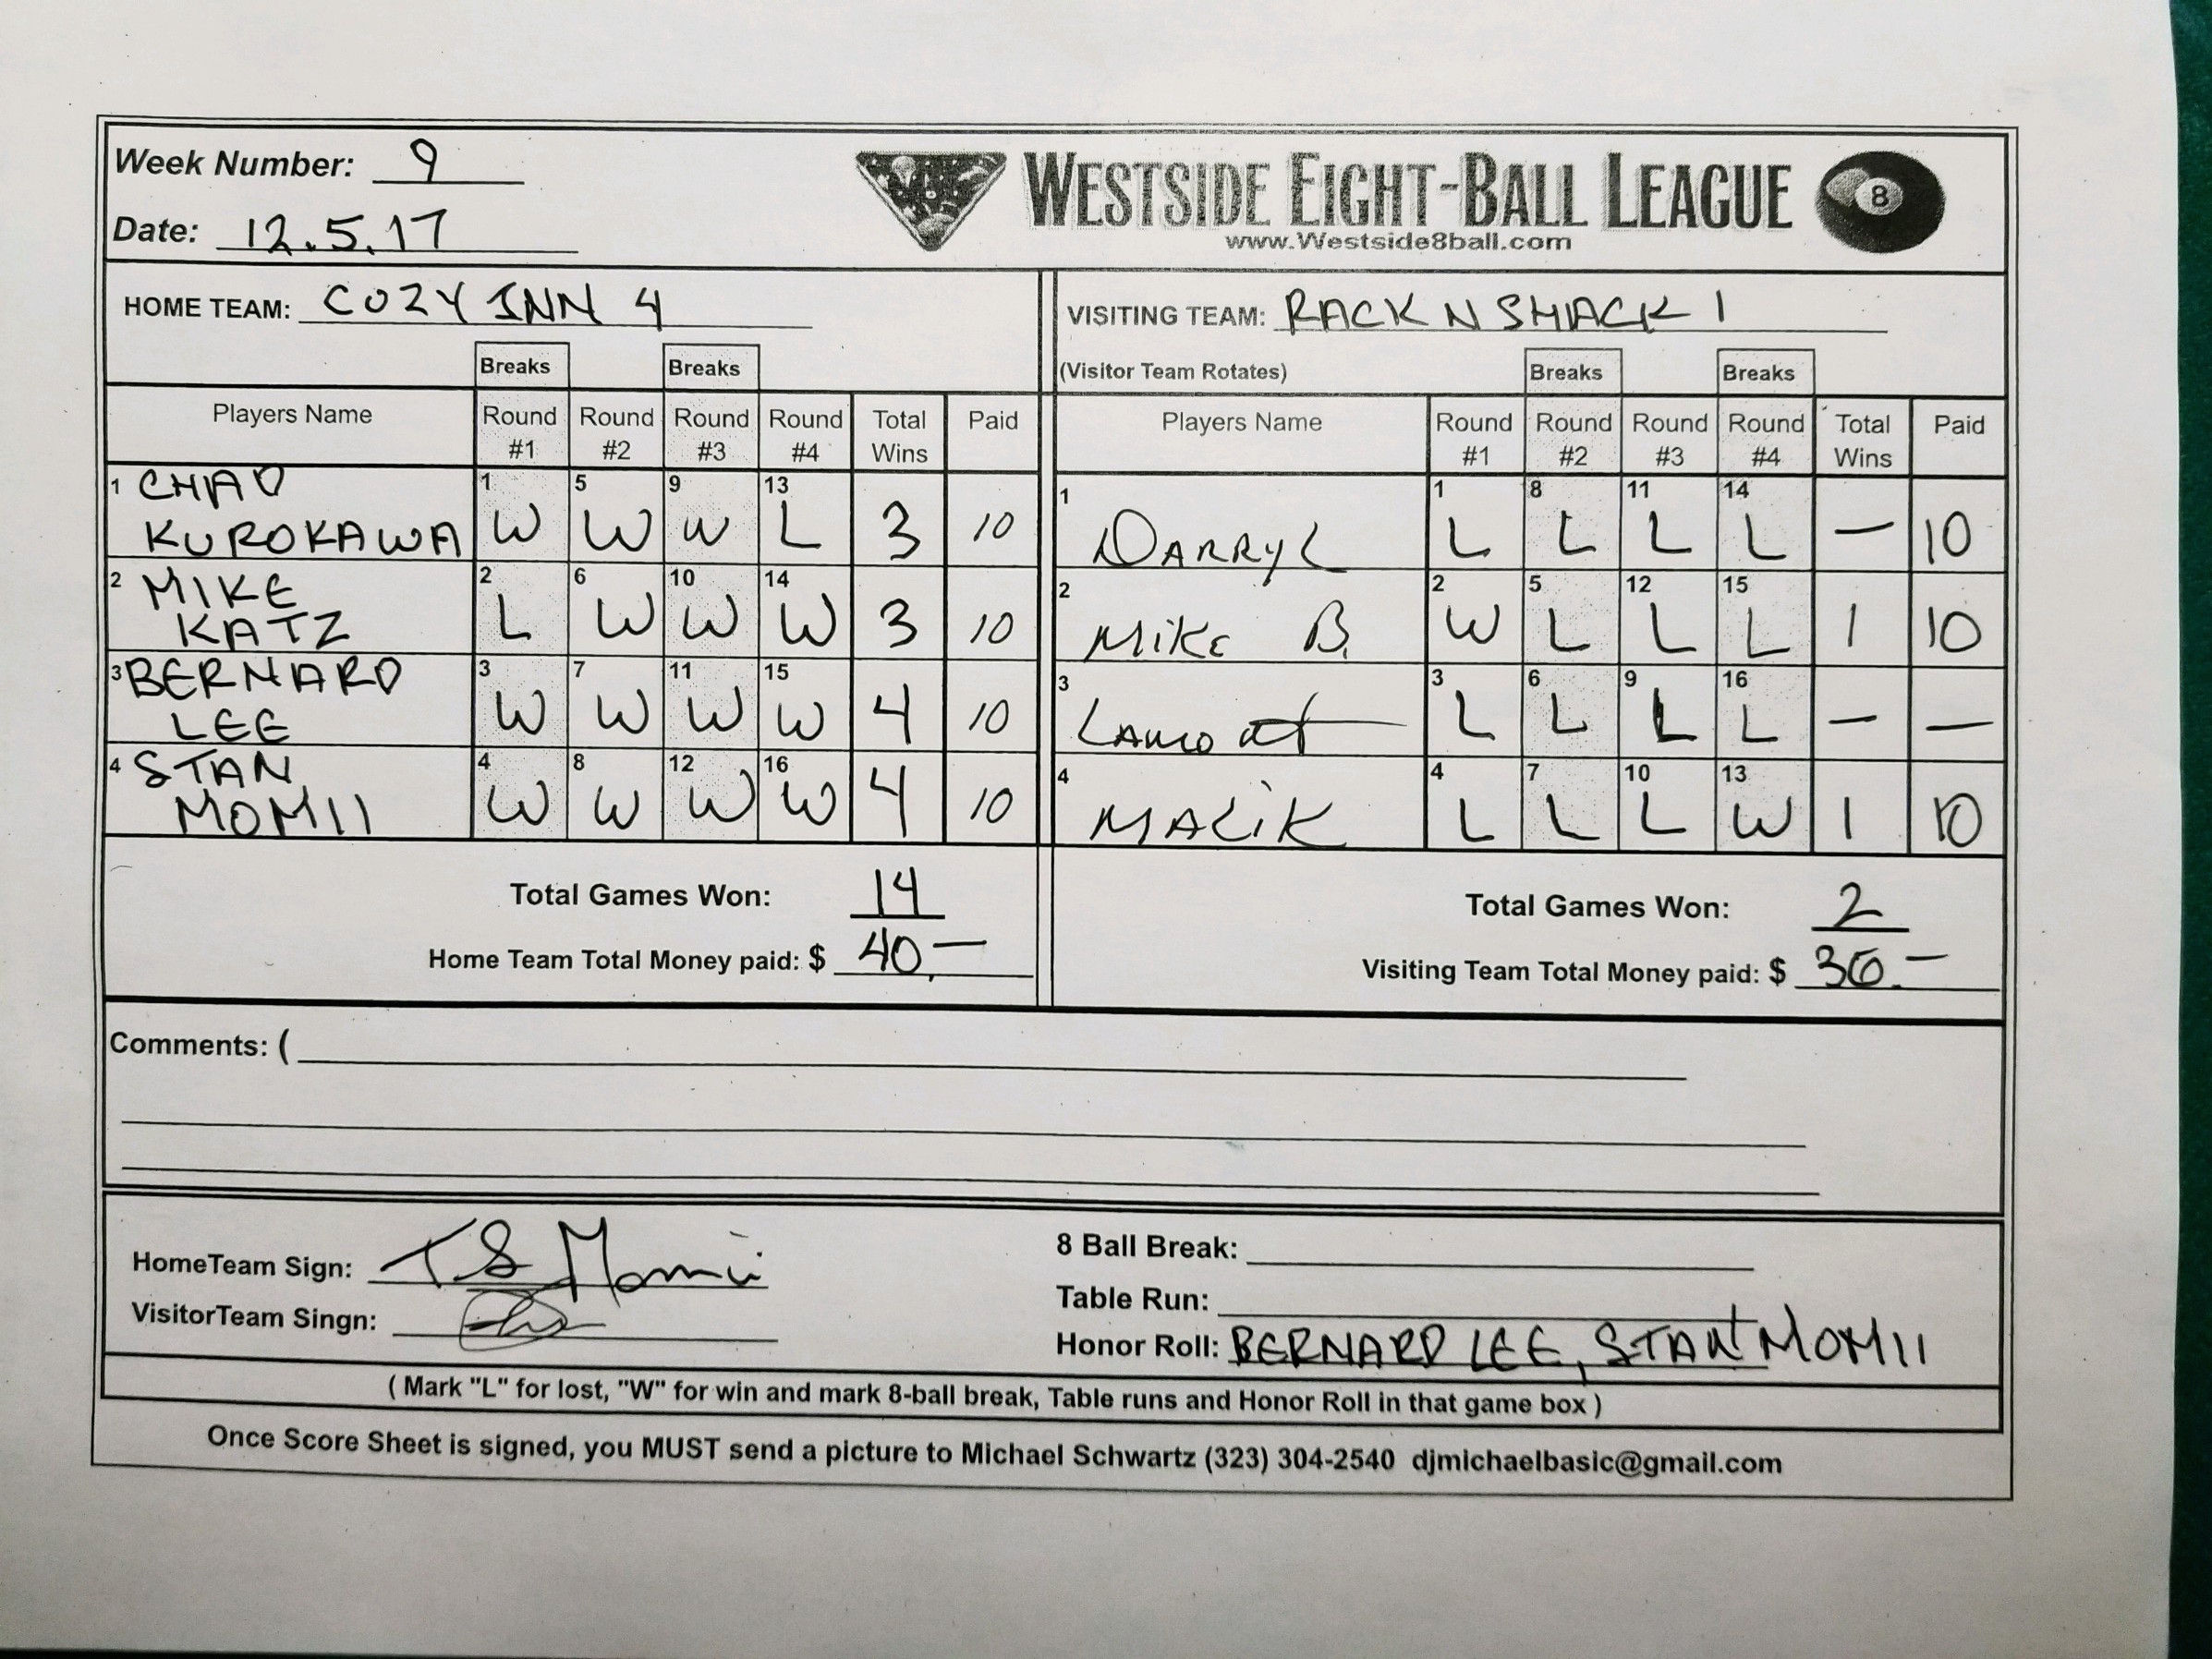 Week Number: 9
Date: 12.5.17
WESTSIDE EIGHT-BALL LEAGUE 8
www.Westside8ball.com
HOME TEAM: COZY INN 4
VISITING TEAM: RACK N SMACK 1
Breaks Breaks
(Visitor Team Rotates) Breaks Breaks
Players Name Round #1 Round #2 Round #3 Round #4 Total Wins Paid
Players Name Round #1 Round #2 Round #3 Round #4 Total Wins Paid
1 CHAD KUROKAWA 1 W 5 W 9 W 13 L 3 10
1 DARRYL 1 L 8 L 11 L 14 L — 10
2 MIKE KATZ 2 L 6 W 10 W 14 W 3 10
2 MIKE B. 2 W 5 L 12 L 15 L 1 10
3 BERNARD LEE 3 W 7 W 11 W 15 W 4 10
3 Lamont 3 L 6 L 9 L 16 L — —
4 STAN MOMII 4 W 8 W 12 W 16 W 4 10
4 MALIK 4 L 7 L 10 L 13 W 1 10
Total Games Won: 14
Total Games Won: 2
Home Team Total Money paid: $ 40.—
Visiting Team Total Money paid: $ 30.—
Comments: (
HomeTeam Sign: T S Momii
VisitorTeam Singn:
8 Ball Break:
Table Run:
Honor Roll: BERNARD LEE, STAN MOMII
( Mark "L" for lost, "W" for win and mark 8-ball break, Table runs and Honor Roll in that game box )
Once Score Sheet is signed, you MUST send a picture to Michael Schwartz (323) 304-2540 djmichaelbasic@gmail.com